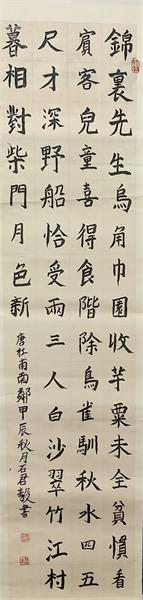 錦裏先生烏角巾園收芋粟未全貧慣看
賓客兒童喜得食階除鳥雀馴秋水四五
尺才深野船恰受兩三人白沙翠竹江村
暮相對柴門月色新
唐杜甫南鄰甲辰秋月石君毅書